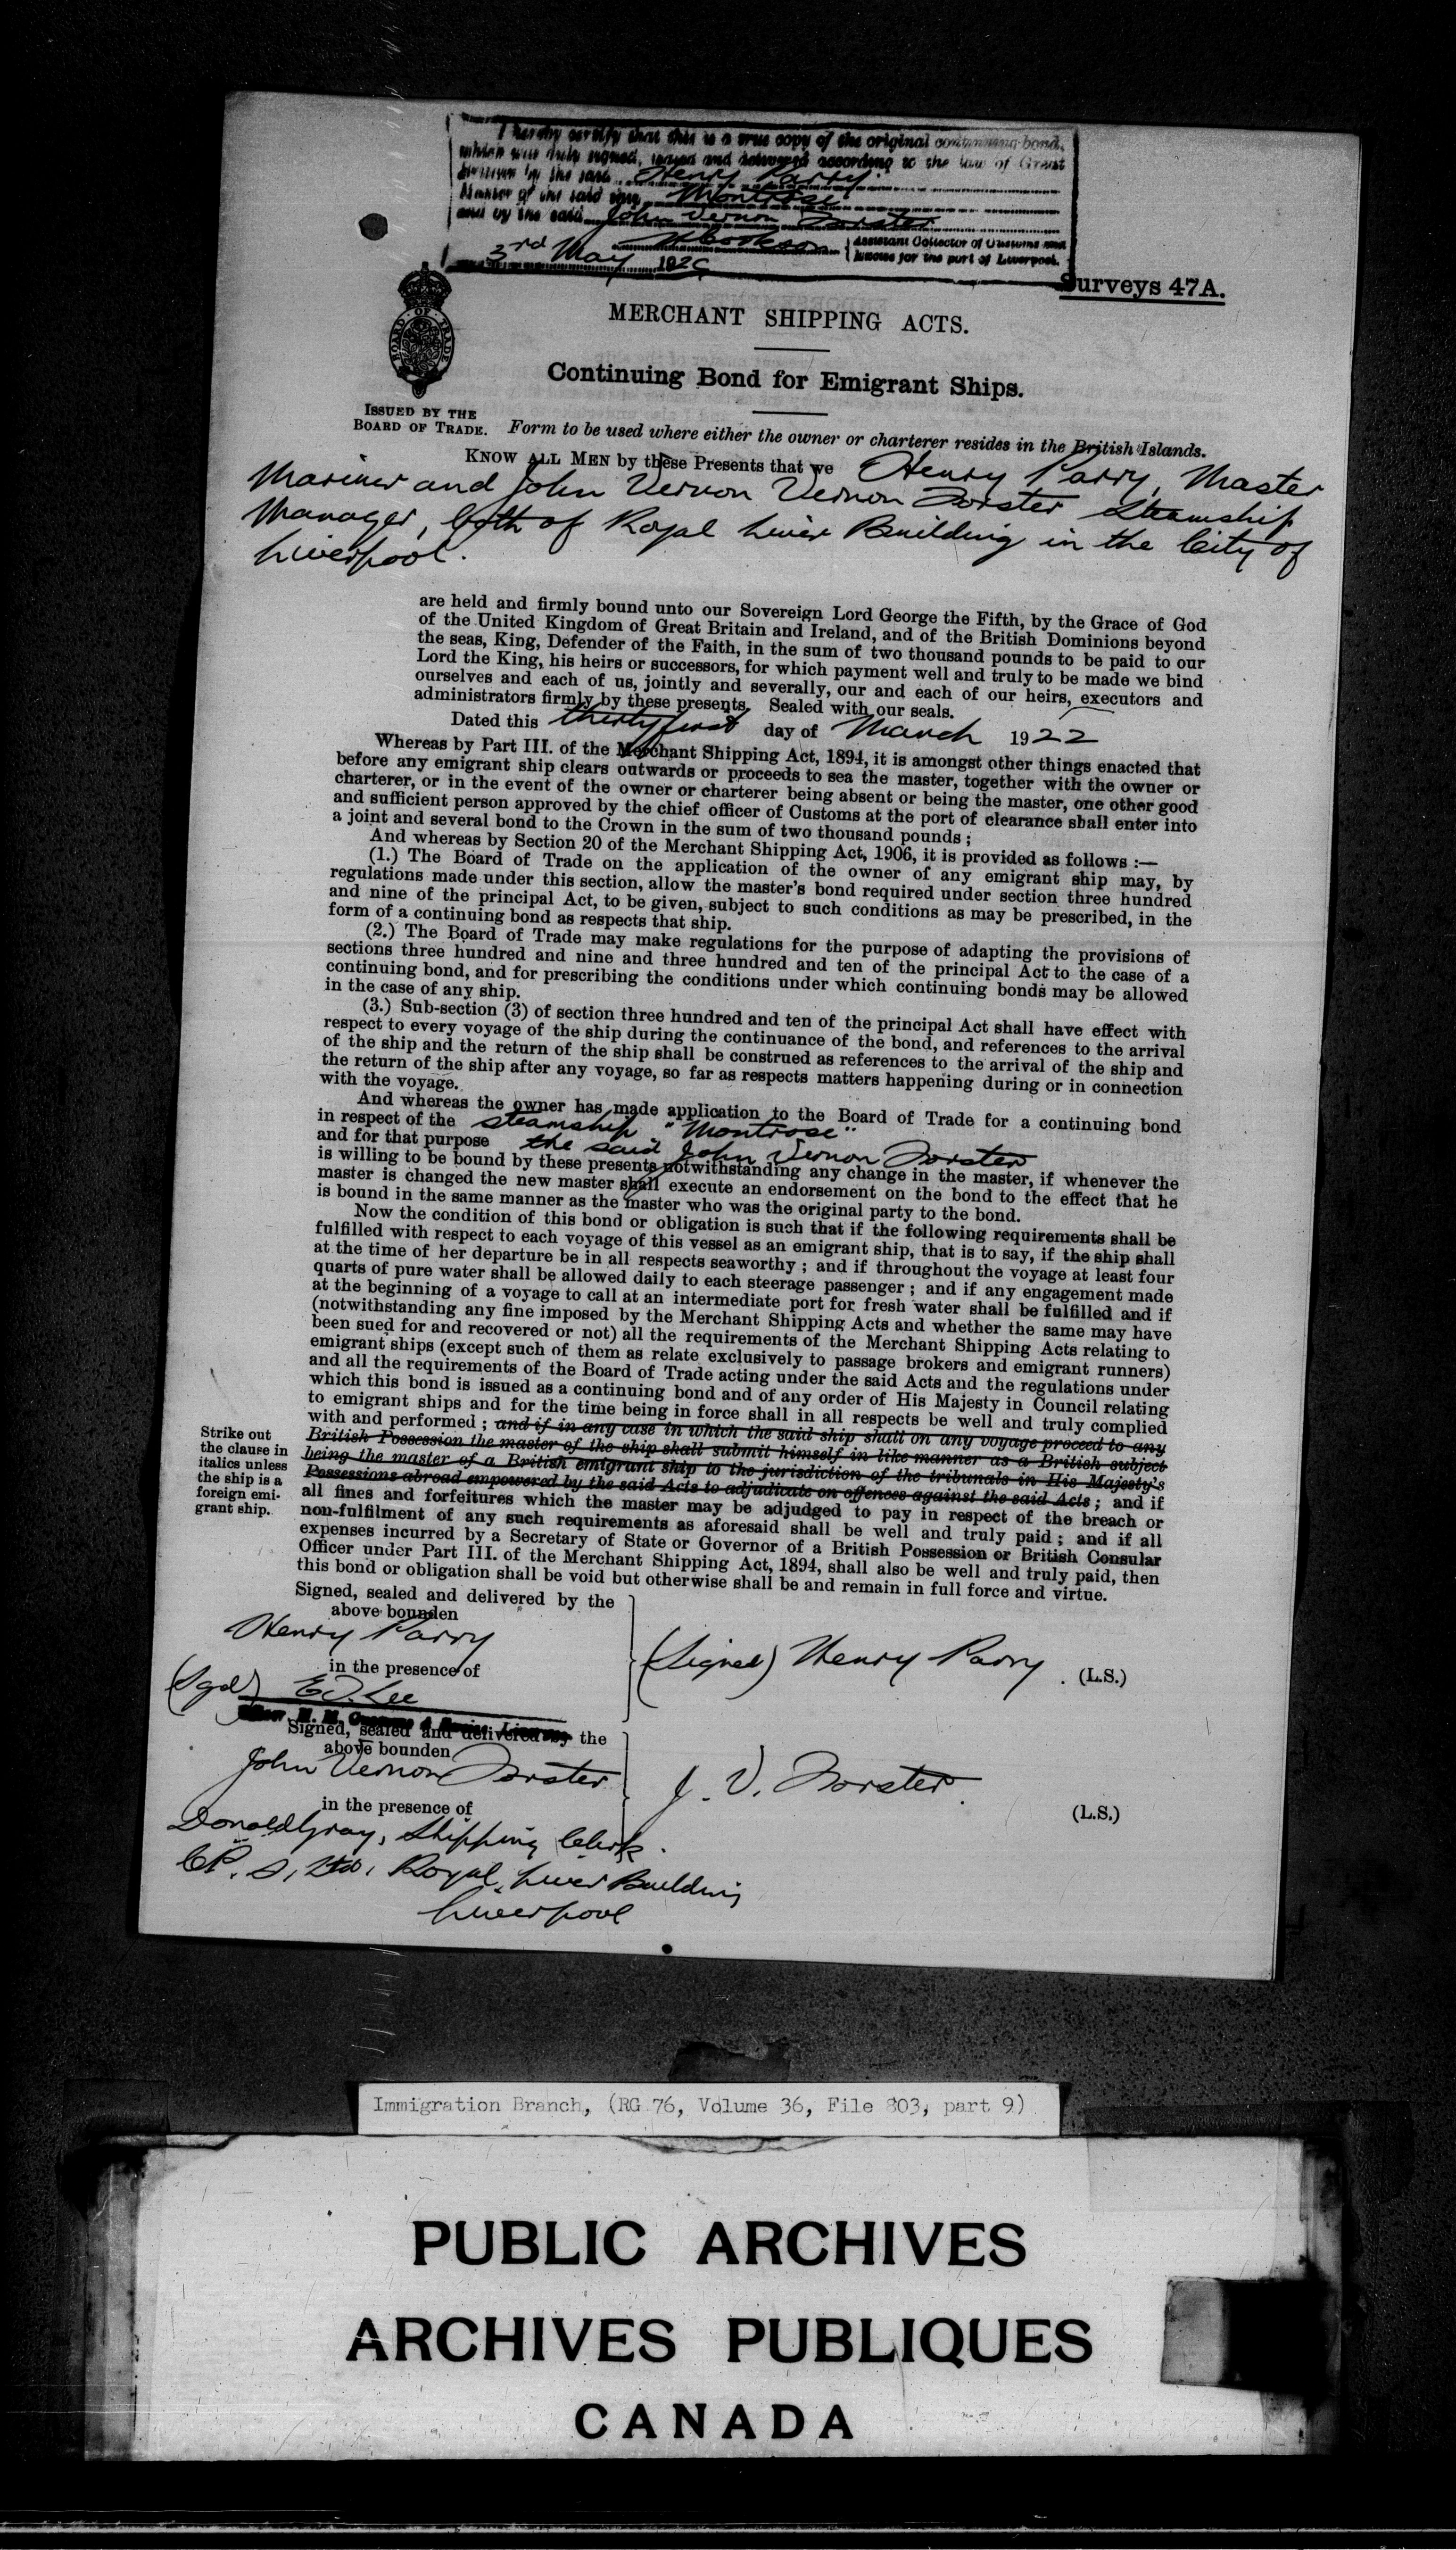 I hereby certify that this is a true copy of the original continuing bond,
which was duly signed, sealed and delivered according to the law of Great
Britain by the said Henry Parry
Master of the said ship Montrose
and by the said John Vernon Forster
Assistant Collector of Customs and
Excise for the port of Liverpool.
3rd May 192
Surveys 47A.
BOARD OF TRADE
MERCHANT SHIPPING ACTS.
Continuing Bond for Emigrant Ships.
ISSUED BY THE
BOARD OF TRADE.
Form to be used where either the owner or charterer resides in the British Islands.
KNOW ALL MEN by these Presents that we Henry Parry, Master
Mariner and John Vernon Vernon Forster Steamship
Manager, both of Royal Liver Building in the City of
Liverpool.
are held and firmly bound unto our Sovereign Lord George the Fifth, by the Grace of God
of the United Kingdom of Great Britain and Ireland, and of the British Dominions beyond
the seas, King, Defender of the Faith, in the sum of two thousand pounds to be paid to our
Lord the King, his heirs or successors, for which payment well and truly to be made we bind
ourselves and each of us, jointly and severally, our and each of our heirs, executors and
administrators firmly by these presents. Sealed with our seals.
Dated this thirty first day of March 1922
Whereas by Part III. of the Merchant Shipping Act, 1894, it is amongst other things enacted that
before any emigrant ship clears outwards or proceeds to sea the master, together with the owner or
charterer, or in the event of the owner or charterer being absent or being the master, one other good
and sufficient person approved by the chief officer of Customs at the port of clearance shall enter into
a joint and several bond to the Crown in the sum of two thousand pounds ;
And whereas by Section 20 of the Merchant Shipping Act, 1906, it is provided as follows :—
(1.) The Board of Trade on the application of the owner of any emigrant ship may, by
regulations made under this section, allow the master's bond required under section three hundred
and nine of the principal Act, to be given, subject to such conditions as may be prescribed, in the
form of a continuing bond as respects that ship.
(2.) The Board of Trade may make regulations for the purpose of adapting the provisions of
sections three hundred and nine and three hundred and ten of the principal Act to the case of a
continuing bond, and for prescribing the conditions under which continuing bonds may be allowed
in the case of any ship.
(3.) Sub-section (3) of section three hundred and ten of the principal Act shall have effect with
respect to every voyage of the ship during the continuance of the bond, and references to the arrival
of the ship and the return of the ship shall be construed as references to the arrival of the ship and
the return of the ship after any voyage, so far as respects matters happening during or in connection
with the voyage.
And whereas the owner has made application to the Board of Trade for a continuing bond
in respect of the steamship "Montrose"
and for that purpose the said John Vernon Forster
is willing to be bound by these presents notwithstanding any change in the master, if whenever the
master is changed the new master shall execute an endorsement on the bond to the effect that he
is bound in the same manner as the master who was the original party to the bond.
Now the condition of this bond or obligation is such that if the following requirements shall be
fulfilled with respect to each voyage of this vessel as an emigrant ship, that is to say, if the ship shall
at the time of her departure be in all respects seaworthy ; and if throughout the voyage at least four
quarts of pure water shall be allowed daily to each steerage passenger ; and if any engagement made
at the beginning of a voyage to call at an intermediate port for fresh water shall be fulfilled and if
(notwithstanding any fine imposed by the Merchant Shipping Acts and whether the same may have
been sued for and recovered or not) all the requirements of the Merchant Shipping Acts relating to
emigrant ships (except such of them as relate exclusively to passage brokers and emigrant runners)
and all the requirements of the Board of Trade acting under the said Acts and the regulations under
which this bond is issued as a continuing bond and of any order of His Majesty in Council relating
to emigrant ships and for the time being in force shall in all respects be well and truly complied
with and performed ; and if in any case in which the said ship shall on any voyage proceed to any
British Possession the master of the ship shall submit himself in like manner as a British subject
being the master of a British emigrant ship to the jurisdiction of the tribunals in His Majesty's
Possessions abroad empowered by the said Acts to adjudicate on offences against the said Acts ; and if
all fines and forfeitures which the master may be adjudged to pay in respect of the breach or
non-fulfilment of any such requirements as aforesaid shall be well and truly paid ; and if all
expenses incurred by a Secretary of State or Governor of a British Possession or British Consular
Officer under Part III. of the Merchant Shipping Act, 1894, shall also be well and truly paid, then
this bond or obligation shall be void but otherwise shall be and remain in full force and virtue.
Strike out
the clause in
italics unless
the ship is a
foreign emi-
grant ship.
Signed, sealed and delivered by the
above bounden
Henry Parry
in the presence of
(Sgd) E.J. Lee
(Signed) Henry Parry. (L.S.)
Signed, sealed and delivered by the
above bounden
John Vernon Forster
in the presence of
J. V. Forster.
(L.S.)
Donald Gray, Shipping Clerk.
C.P. S, Ltd, Royal Liver Building
Liverpool
Immigration Branch, (RG 76, Volume 36, File 803, part 9)
PUBLIC ARCHIVES
ARCHIVES PUBLIQUES
CANADA